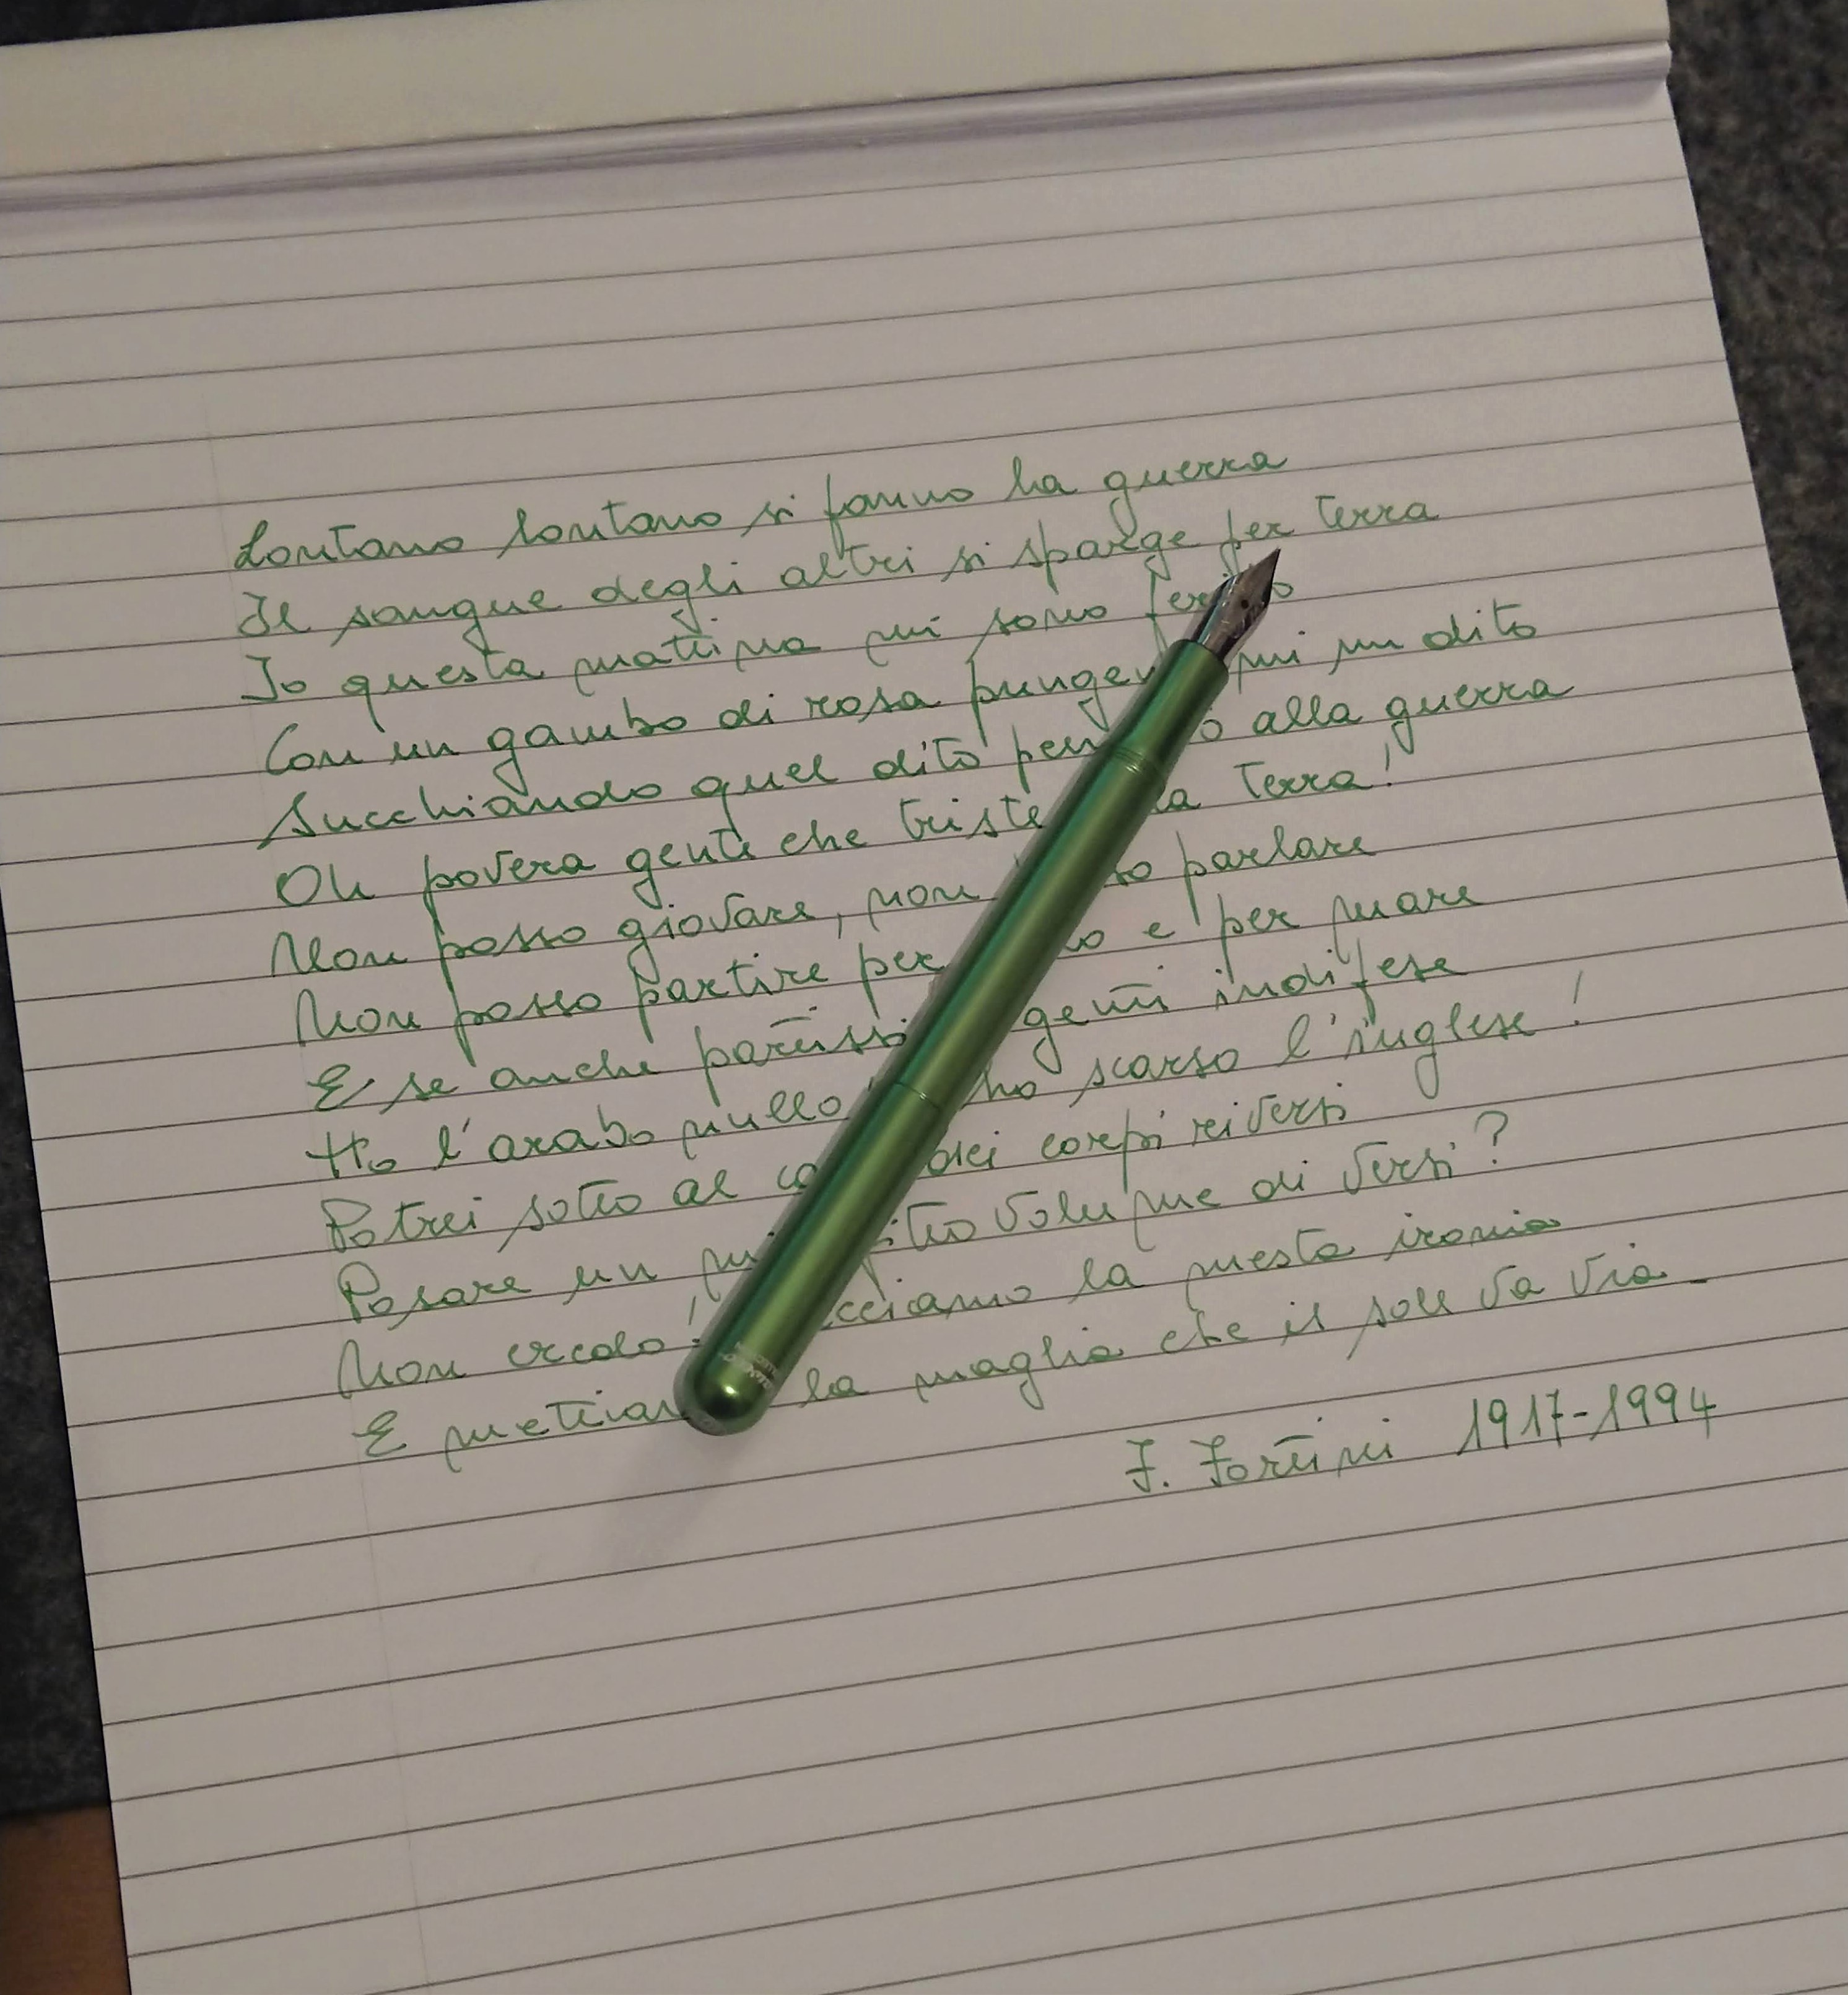 Lontano lontano si fanno la guerra
Il sangue degli altri si sparge per terra
Io questa mattina mi sono ferito
Con un gambo di rosa pungendomi un dito
Succhiando quel dito pensavo alla guerra
Oh povera gente che triste la terra!
Non posso giovare, non parlare
Non posso partire per e per mare
E se anche partissi genti indifese
Ho l'arabo nullo ho scarso l'inglese!
Potrei sotto al dei corpi riversi
Posare un volume di versi?
Non credo! la mesta ironia
E mettiamo la maglia che il sole va via
F. Fortini 1917-1994